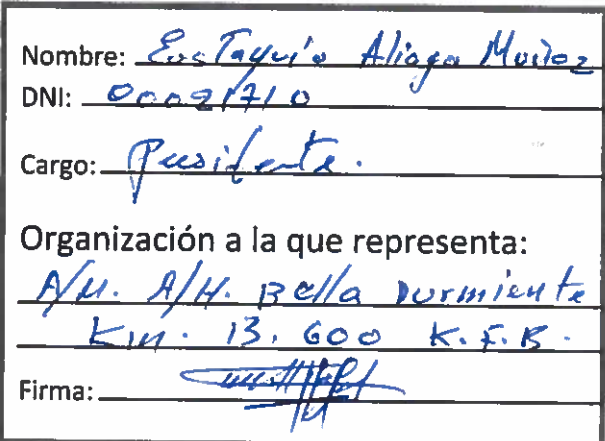 Nombre: Eustaquio Aliaga Muñoz
DNI: 00021710
Cargo: Presidente.
Organización a la que representa:
A/H. Bella Durmiente
Km. 13.600 K.F.B.
Firma: